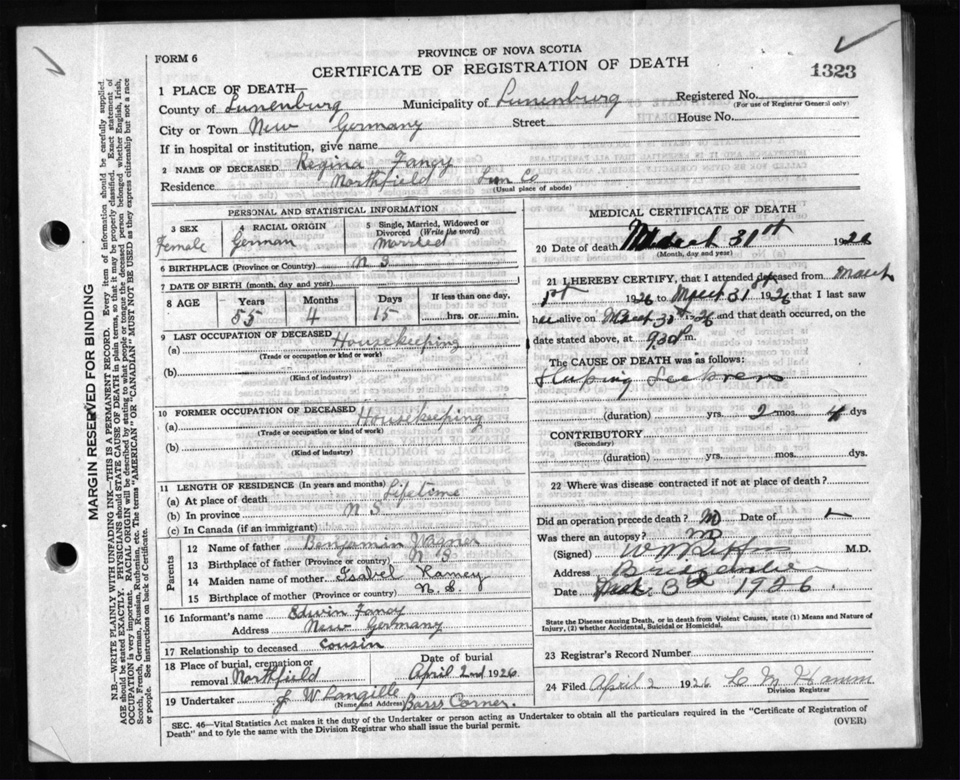 FORM 6
PROVINCE OF NOVA SCOTIA
CERTIFICATE OF REGISTRATION OF DEATH
1323
1 PLACE OF DEATH
County of Lunenburg Municipality of Lunenburg Registered No.
(For use of Registrar General only)
City or Town New Germany Street House No.
If in hospital or institution, give name
2 NAME OF DECEASED Regina Fancy
Residence Northfield Lun Co
(Usual place of abode)
PERSONAL AND STATISTICAL INFORMATION
3 SEX Female
4 RACIAL ORIGIN German
5 Single, Married, Widowed or Divorced (Write the word) Married
6 BIRTHPLACE (Province or Country) N S
7 DATE OF BIRTH (month, day and year)
8 AGE Years Months Days If less than one day,
55 4 15 hrs. or min.
9 LAST OCCUPATION OF DECEASED
(a) Housekeeping
(Trade or occupation or kind or work)
(b)
(Kind of industry)
10 FORMER OCCUPATION OF DECEASED
(a) Housekeeping
(Trade or occupation or kind of work)
(b)
(Kind of industry)
11 LENGTH OF RESIDENCE (In years and months)
(a) At place of death Lifetime
(b) In province N S
(c) In Canada (if an immigrant)
Parents
12 Name of father Benjamin
13 Birthplace of father (Province or country) N S
14 Maiden name of mother Isabel Ramey
15 Birthplace of mother (Province or country) N. S.
16 Informant's name Edwin Fancy
Address New Germany
17 Relationship to deceased cousin
18 Place of burial, cremation or removal Northfield
Date of burial April 2nd 1926
19 Undertaker J W Langille
(Name and Address) Barss Corner.
MEDICAL CERTIFICATE OF DEATH
20 Date of death March 31st 1926
(Month, day and year)
21 I HEREBY CERTIFY, that I attended deceased from March
1st 1926 to March 31 1926 that I last saw
h alive on March 30th 26 and that death occurred, on
date stated above, at m.
The CAUSE OF DEATH was as follows:
(duration) yrs. 2 mos. 4 dys
CONTRIBUTORY
(Secondary)
(duration) yrs. mos. dys.
22 Where was disease contracted if not at place of death?
Did an operation precede death? No Date of
Was there an autopsy? No
(Signed) M.D.
Address Bridgewater
Date 3rd 1926
State the Disease causing Death, or in death from Violent Causes, state (1) Means and Nature of Injury, (2) whether Accidental, Suicidal or Homicidal.
23 Registrar's Record Number
24 Filed April 2 1926 C M Hamm
Division Registrar
SEC. 46—Vital Statistics Act makes it the duty of the Undertaker or person acting as Undertaker to obtain all the particulars required in the "Certificate of Registration of
Death" and to fyle the same with the Division Registrar who shall issue the burial permit.
(OVER)
MARGIN RESERVED FOR BINDING
N.B.—WRITE PLAINLY WITH UNFADING INK—THIS IS A PERMANENT RECORD. Every item of information should be carefully supplied.
AGE should be stated EXACTLY. PHYSICIANS should STATE CAUSE OF DEATH in plain terms, so that it may be properly classified. Exact statement of
OCCUPATION is very important. RACIAL ORIGIN will be described by stating to what people or tongue the deceased person belonged whether English, Irish,
Scotch, French, German, Russian, Ruthenian, etc. The terms "AMERICAN" OR "CANADIAN" MUST NOT BE USED as they express citizenship but not a race
or people. See instructions on back of Certificate.